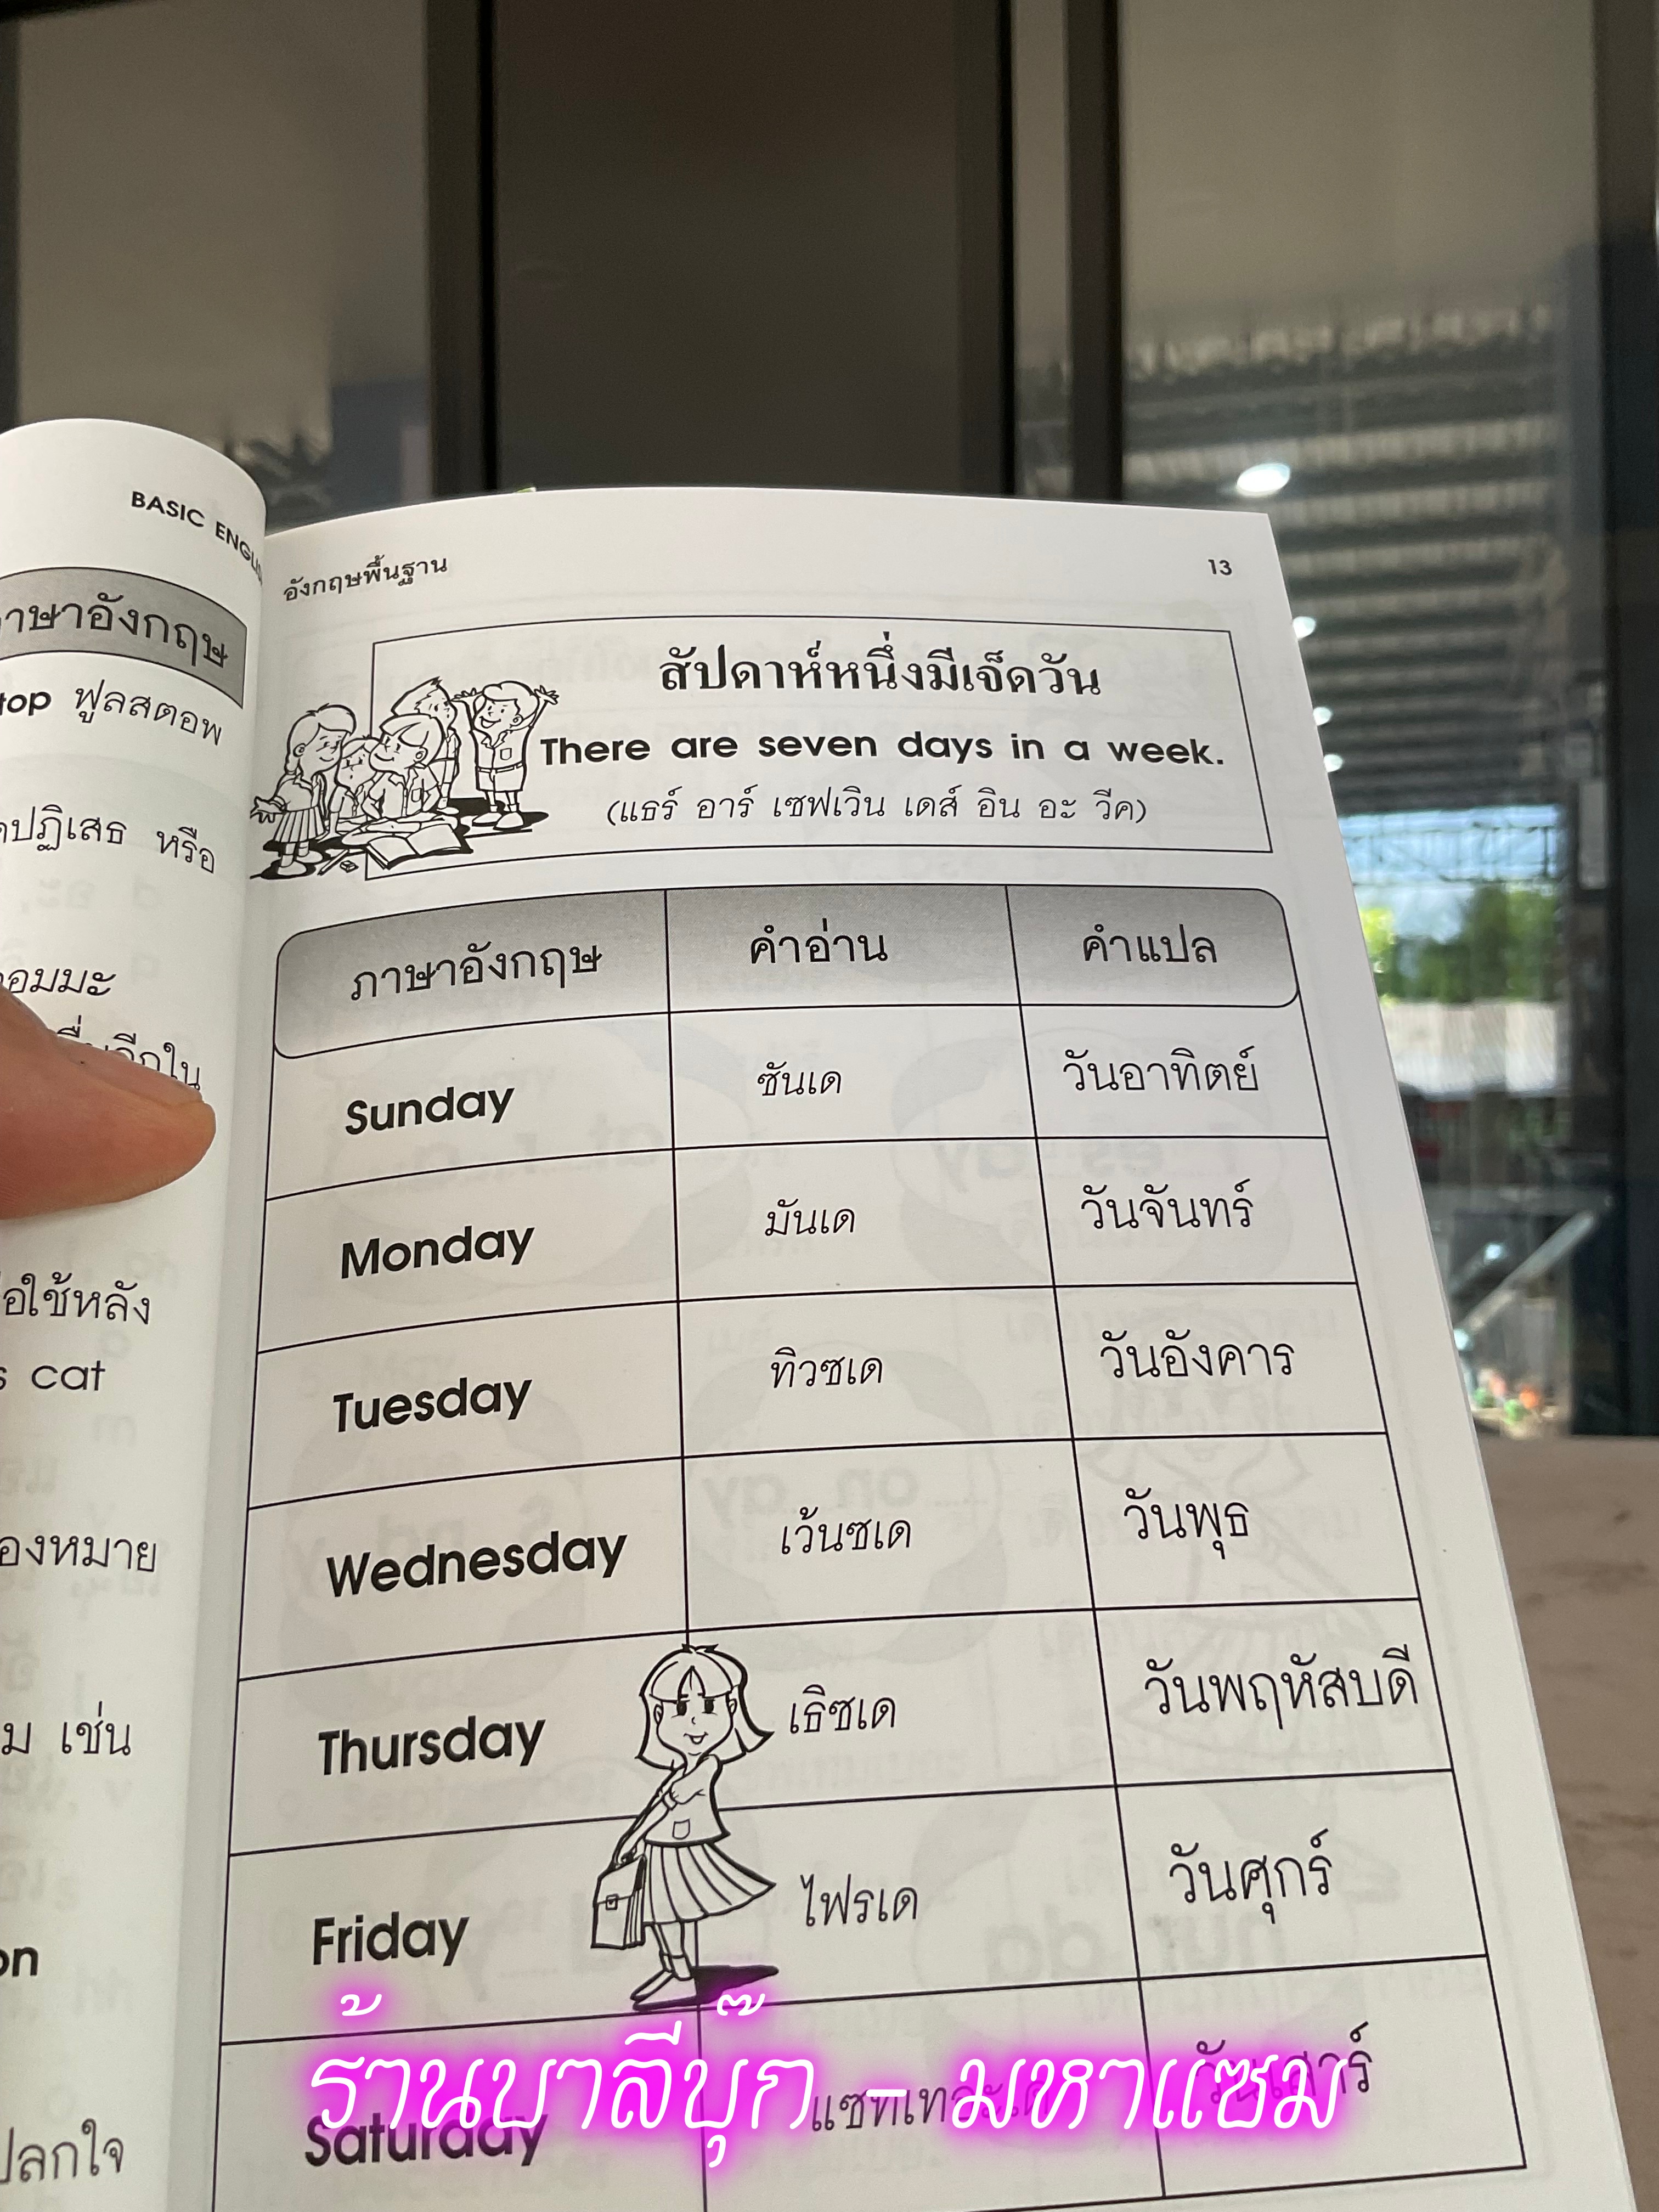 BASIC
าษาอังกฤษ
top ฟูลสตอพ
ปฏิเสธ หรือ
อมมะ
อใช้หลัง
s cat
องหมาย
ม เช่น
on
ปลกใจ
อังกฤษพื้นฐาน 13
สัปดาห์หนึ่งมีเจ็ดวัน
There are seven days in a week.
(แธร์ อาร์ เซฟเวิน เดส์ อิน อะ วีค)
ภาษาอังกฤษ คำอ่าน คำแปล
Sunday ซันเด วันอาทิตย์
Monday มันเด วันจันทร์
Tuesday ทิวซเด วันอังคาร
Wednesday เว้นซเด วันพุธ
Thursday เธิซเด วันพฤหัสบดี
Friday ไฟรเด วันศุกร์
Saturday
ร้านบาลีบุ๊ก - มหาแซม